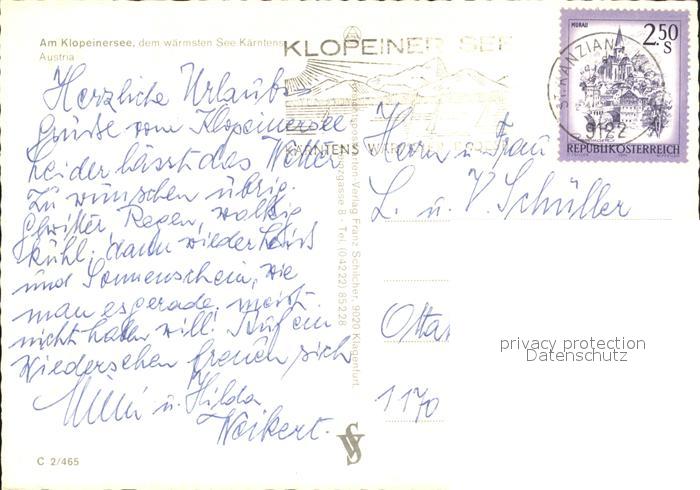 Am Klopeinersee, dem wärmsten See Kärntens
Austria
KLOPEINER SEE
KÄRNTENS
MURAU
2.50
S
ST. KANZIAN
9122
REPUBLIK ÖSTERREICH
Herzliche Urlaubs
Grüsse vom Klopeinersee
Leider lässt das Wetter
zu wünschen übrig.
Gewitter, Regen, wolkig
kühl, dann wieder heiss
und Sonnenschein, wie
man es gerade meist
nicht haben will! Auf ein
Wiedersehen freuen sich
u. Hilda
Weikert.
Herrn u. Frau
L. u. V. Schüller
Otta
1170
Verlag Franz Schilcher, 9020 Klagenfurt,
gasse 8 - Tel. (0 42 22) 85 2 28
privacy protection
Datenschutz
C 2/465